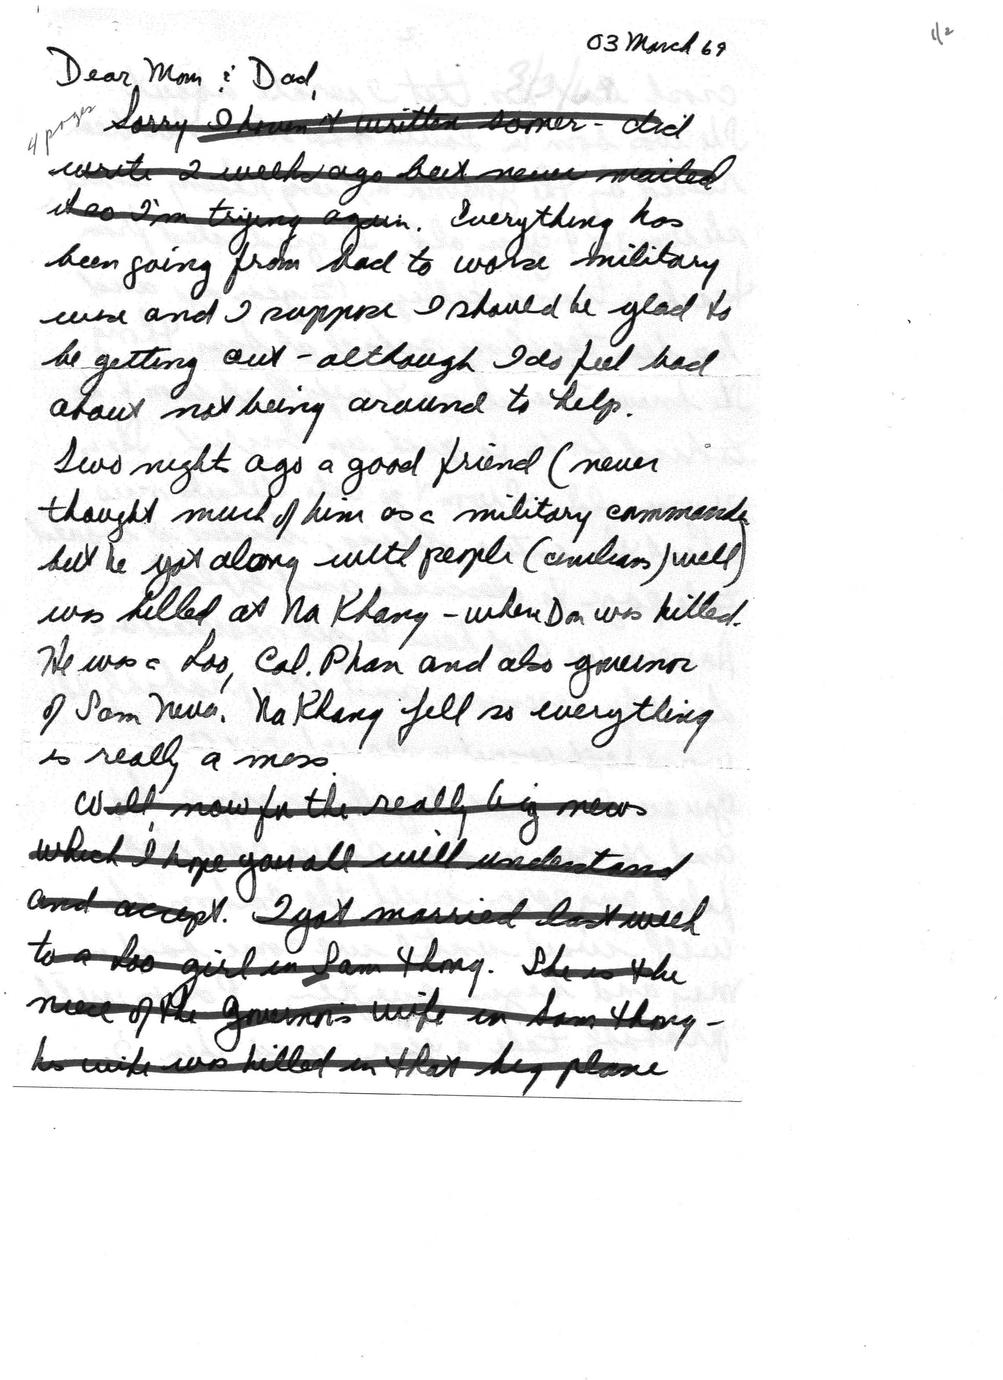 03 March 69
1/2
Dear Mom & Dad,
4 pages
Sorry I haven't written sooner - did
write 2 weeks ago but never mailed
it so I'm trying again. Everything has
been going from bad to worse military
wise and I suppose I should be glad to
be getting out - although I do feel bad
about not being around to help.
Two nights ago a good friend (never
thought much of him as a military commander
but he got along with people (civilians) well)
was killed at Na Khang - when Don was killed.
He was a Lao, Col. Phan and also governor
of Sam Neua. Na Khang fell so everything
is really a mess.
Well, now for the really big news
which I hope you all will understand
and accept. I got married last week
to a Lao girl in Sam Thong. She is the
niece of the Governor's wife in Sam Thong -
his wife was killed in that big plane